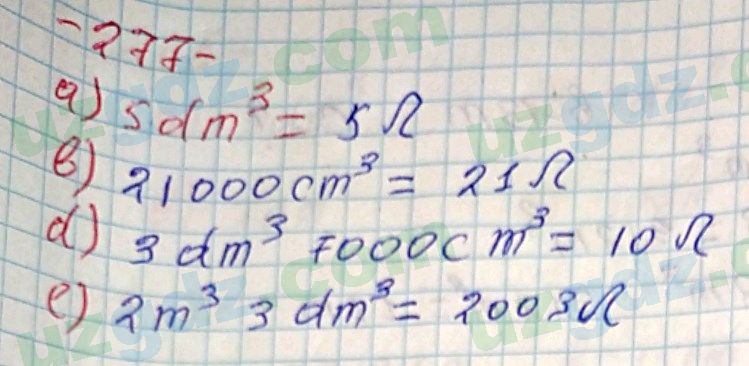 -277-
a) 5 dm³ = 5 л
b) 21000 cm³ = 21 л
d) 3 dm³ 7000 cm³ = 10 л
e) 2m³ 3 dm³ = 2003 л
uzgdz.com